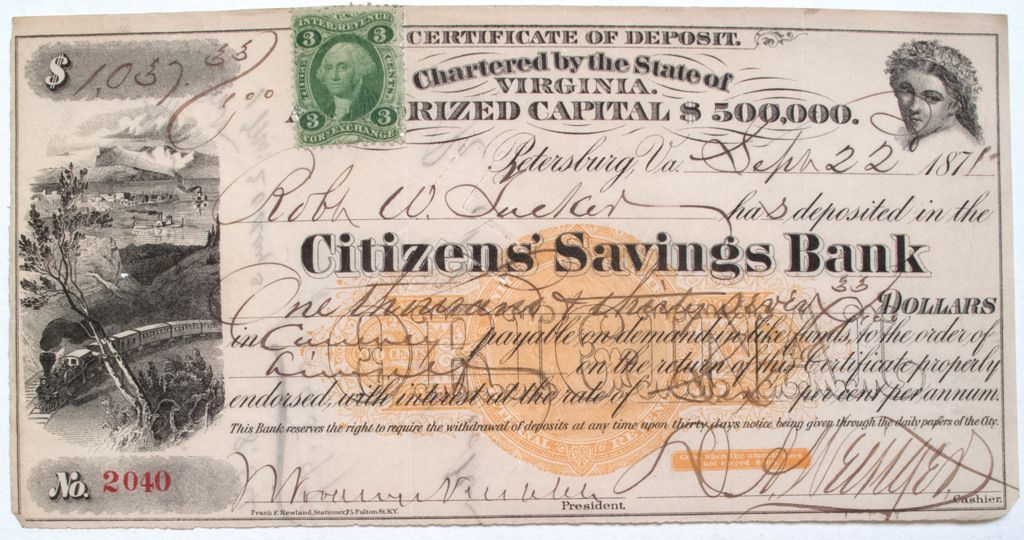 CERTIFICATE OF DEPOSIT.
$ 1,037.33/100
U.S. INTER. REVENUE
3 3
THREE CENTS
3 3
FOR EXCHANGE
Chartered by the State of
VIRGINIA.
RIZED CAPITAL $ 500,000.
Petersburg, Va. Sept 22 1871
Robt W. Tucker has deposited in the
Citizens' Savings Bank
One thousand & thirty seven 33 DOLLARS
in Currency payable on demand in like funds, to the order of
himself on the return of this Certificate properly
endorsed, with interest at the rate of Six per cent per annum.
This Bank reserves the right to require the withdrawal of deposits at any time upon thirty days notice being given through the daily papers of the City.
Good when the amount does
not exceed
No. 2040
President.
Cashier.
Frank F. Newland, Stationer, 75 Fulton St. N.Y.